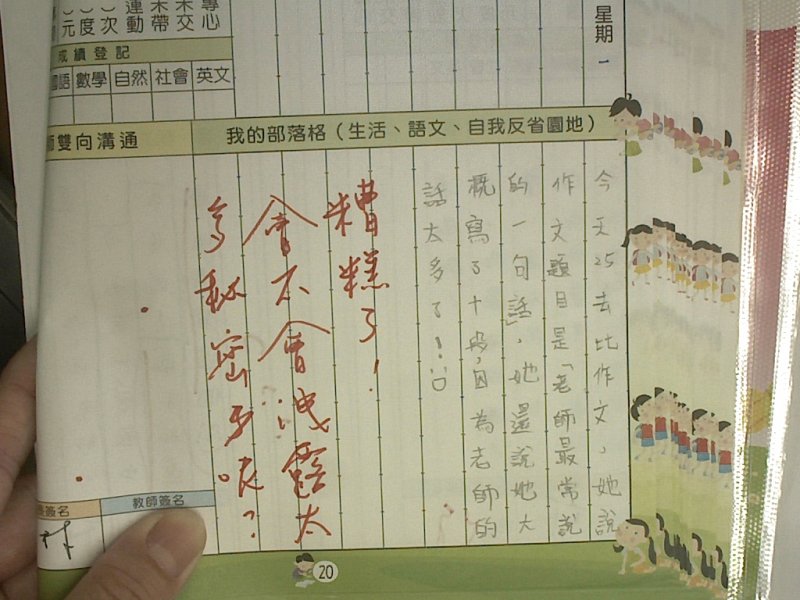 星期 一
專心
木交
木帶
連動
次
度
元
成績登記
國語 數學 自然 社會 英文
師雙向溝通
我的部落格（生活、語文、自我反省園地）
今天25去比作文，她說
作文題目是「老師最常說
的一句話」，她還說她大
概寫了十段，因為老師的
話太多了！
糟糕了！
會不會洩露太
多秘密了呢？
教師簽名
簽名
20